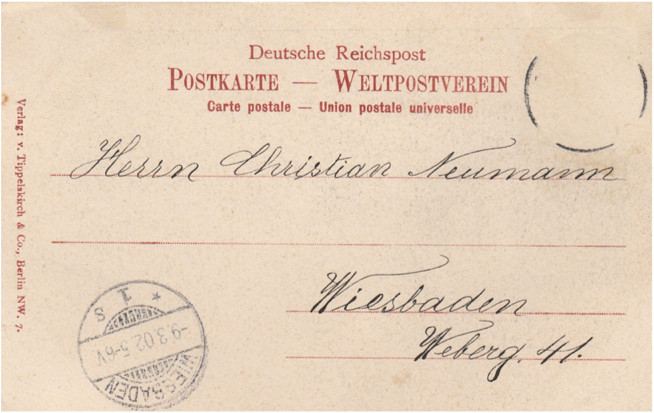 Deutsche Reichspost
POSTKARTE — WELTPOSTVEREIN
Carte postale — Union postale universelle
Verlag: v. Tippelskirch & Co., Berlin NW. 7.
Herrn Christian Neumann
Wiesbaden
Weberg. 41.
* 1 S
-9.3.02.5-6V
WIESBADEN